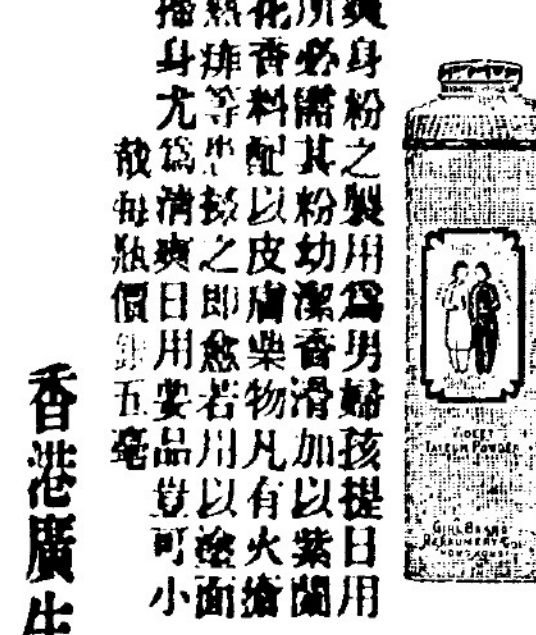 爽身粉之製用爲男婦孩提日用
所必需其粉幼潔香滑加以紫蘭
花香料配以皮膚藥物凡有火瘡
熱痱等患搽之即愈若用以塗面
身尤爲清爽日用要品豈可小
每瓶價銀五毫
香港廣生
VIOLET
TALCUM POWDER
GIRL BRAND
PERFUMERY CO.
HONG KONG